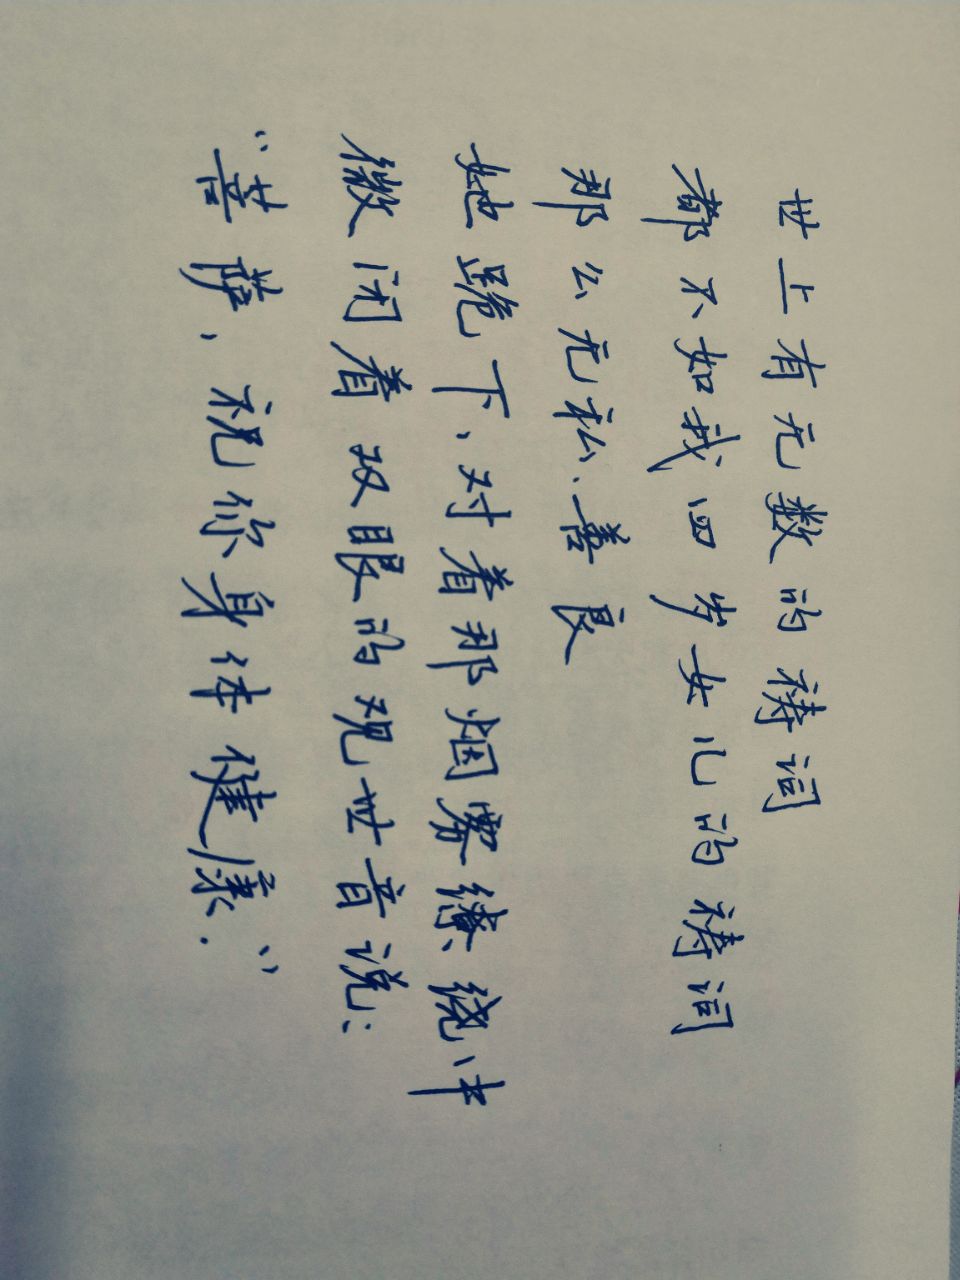 世上有无数的祷词
都不如我四岁女儿的祷词
那么无私、善良
她跪下、对着那烟雾缭绕中
微闭着双眼的观世音说:
“菩萨、祝你身体健康.”